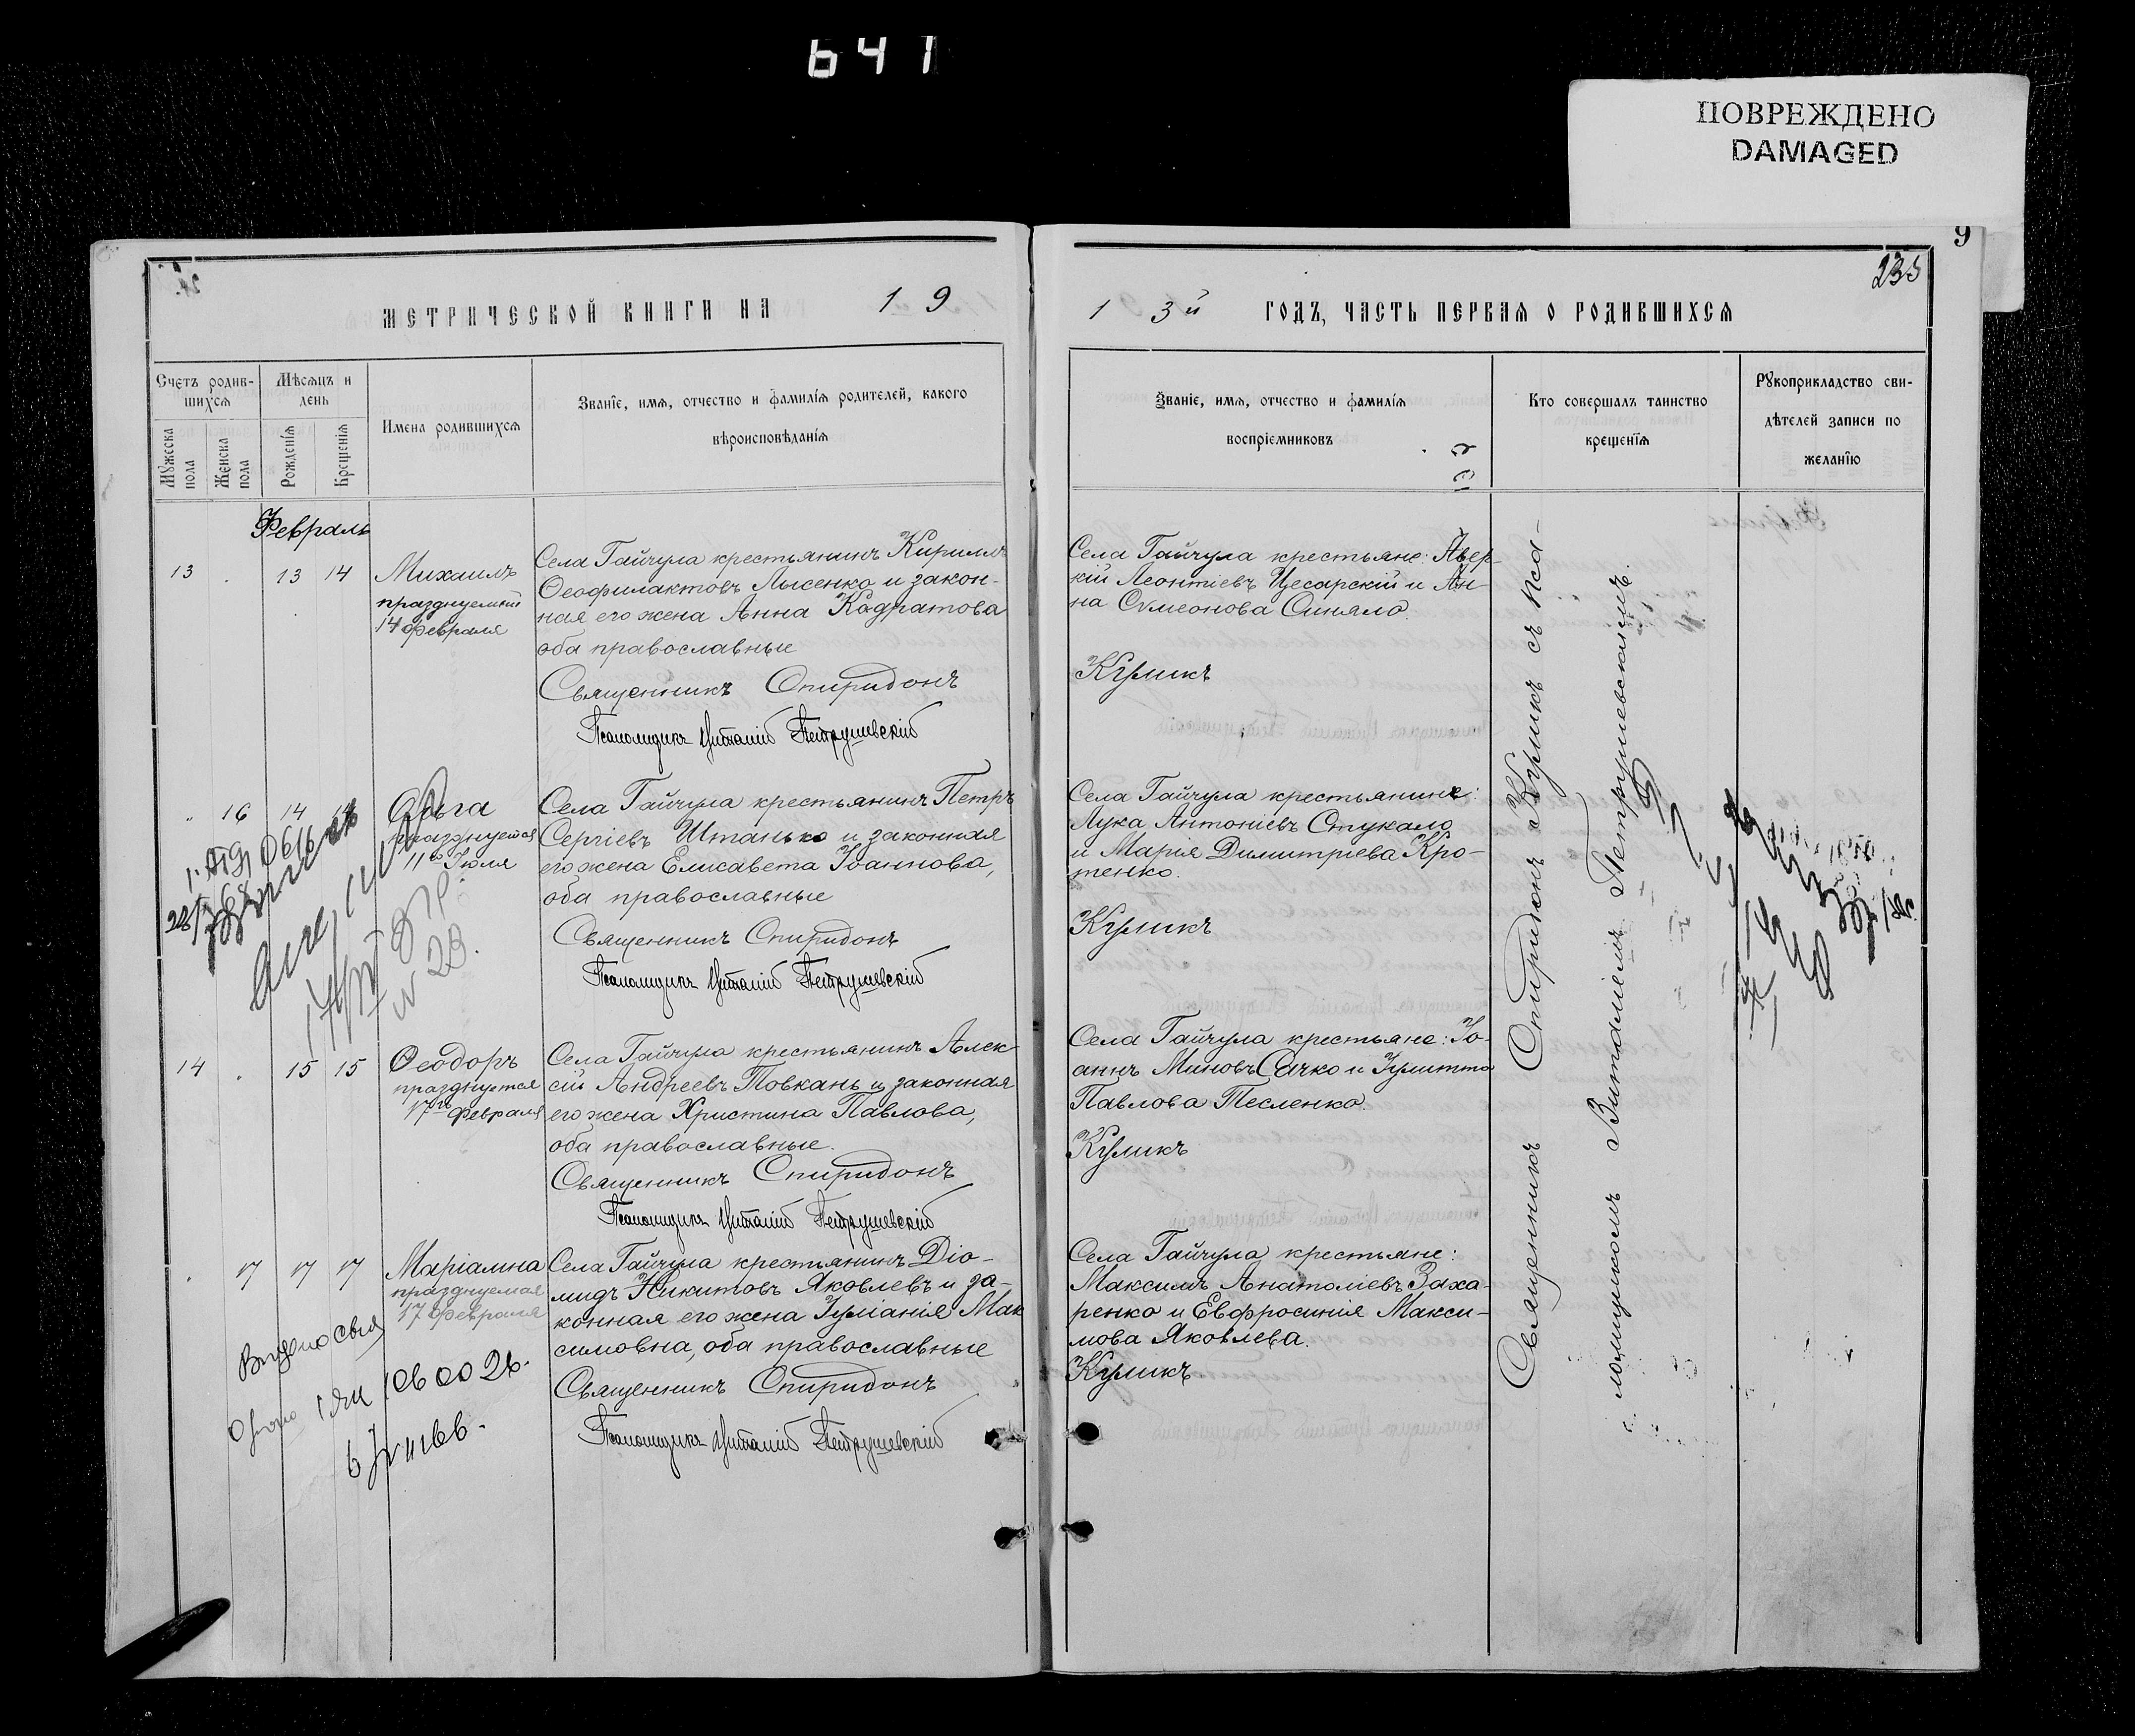 641
ПОВРЕЖДЕНО
DAMAGED
9
235
МЕТРИЧЕСКОЙ КНИГИ НА 19
13й ГОДЪ, ЧАСТЬ ПЕРВАЯ О РОДИВШИХСЯ
Счетъ родив-
шихся
Мѣсяцъ и
день
Мужеска
пола
Женска
пола
Рожденїя
Крещенїя
Имена родившихся
Званїе, имя, отчество и фамилїя родителей, какого
вѣроисповѣданїя
Званїе, имя, отчество и фамилїя
воспрїемниковъ
Кто совершалъ таинство
крещенїя
Рукоприкладство сви-
дѣтелей записи по
желанїю
Февраль
13 13 14
Михаилъ
празднуемый
14 февраля
Села Гайчула крестьянинъ Кириллъ
Ѳеофилактовъ Лысенко и закон-
ная его жена Анна Кодратова
оба православные
Священникъ Спиридонъ
Псаломщикъ Виталій Петрушевскій
Села Гайчула крестьяне: Авер-
кій Леонтіевъ Цесарскій и Ан-
на Сѵмеонова Синяло.
Куликъ
16 14
Ольга
празднуется
11го Іюля
Села Гайчула крестьянинъ Петръ
Сергіевъ Штанько и законная
его жена Елисавета Іоаннова,
оба православные
Священникъ Спиридонъ
Псаломщикъ Виталій Петрушевскій
Села Гайчула крестьянине:
Лука Антоніевъ Стукало
и Марія Димитріева Кро-
тенко.
Куликъ
14 15 15
Ѳеодоръ
празднуется
17го февраля
Села Гайчула крестьянинъ Алек-
сій Андреевъ Товкань и законная
его жена Христина Павлова,
оба православные.
Священникъ Спиридонъ
Псаломщикъ Виталій Петрушевскій
Села Гайчула крестьяне: Іо-
аннъ Миновъ Сачко и Іулитта
Павлова Тесленко.
Куликъ
17 17 17
Маріамна
празднуемая
17 февраля
Села Гайчула крестьянинъ Діо-
мидъ Никитовъ Яковлевъ и за-
конная его жена Іуліанія Мак
симовна, оба православные
Священникъ Спиридонъ
Псаломщикъ Виталій Петрушевскій
Села Гайчула крестьяне:
Максимъ Анатоліевъ Заха-
ренко и Евфросинія Макси-
мова Яковлева.
Куликъ
Священникъ Спиридонъ Куликъ съ пса-
ломщикомъ Виталіемъ Петрушевскимъ.